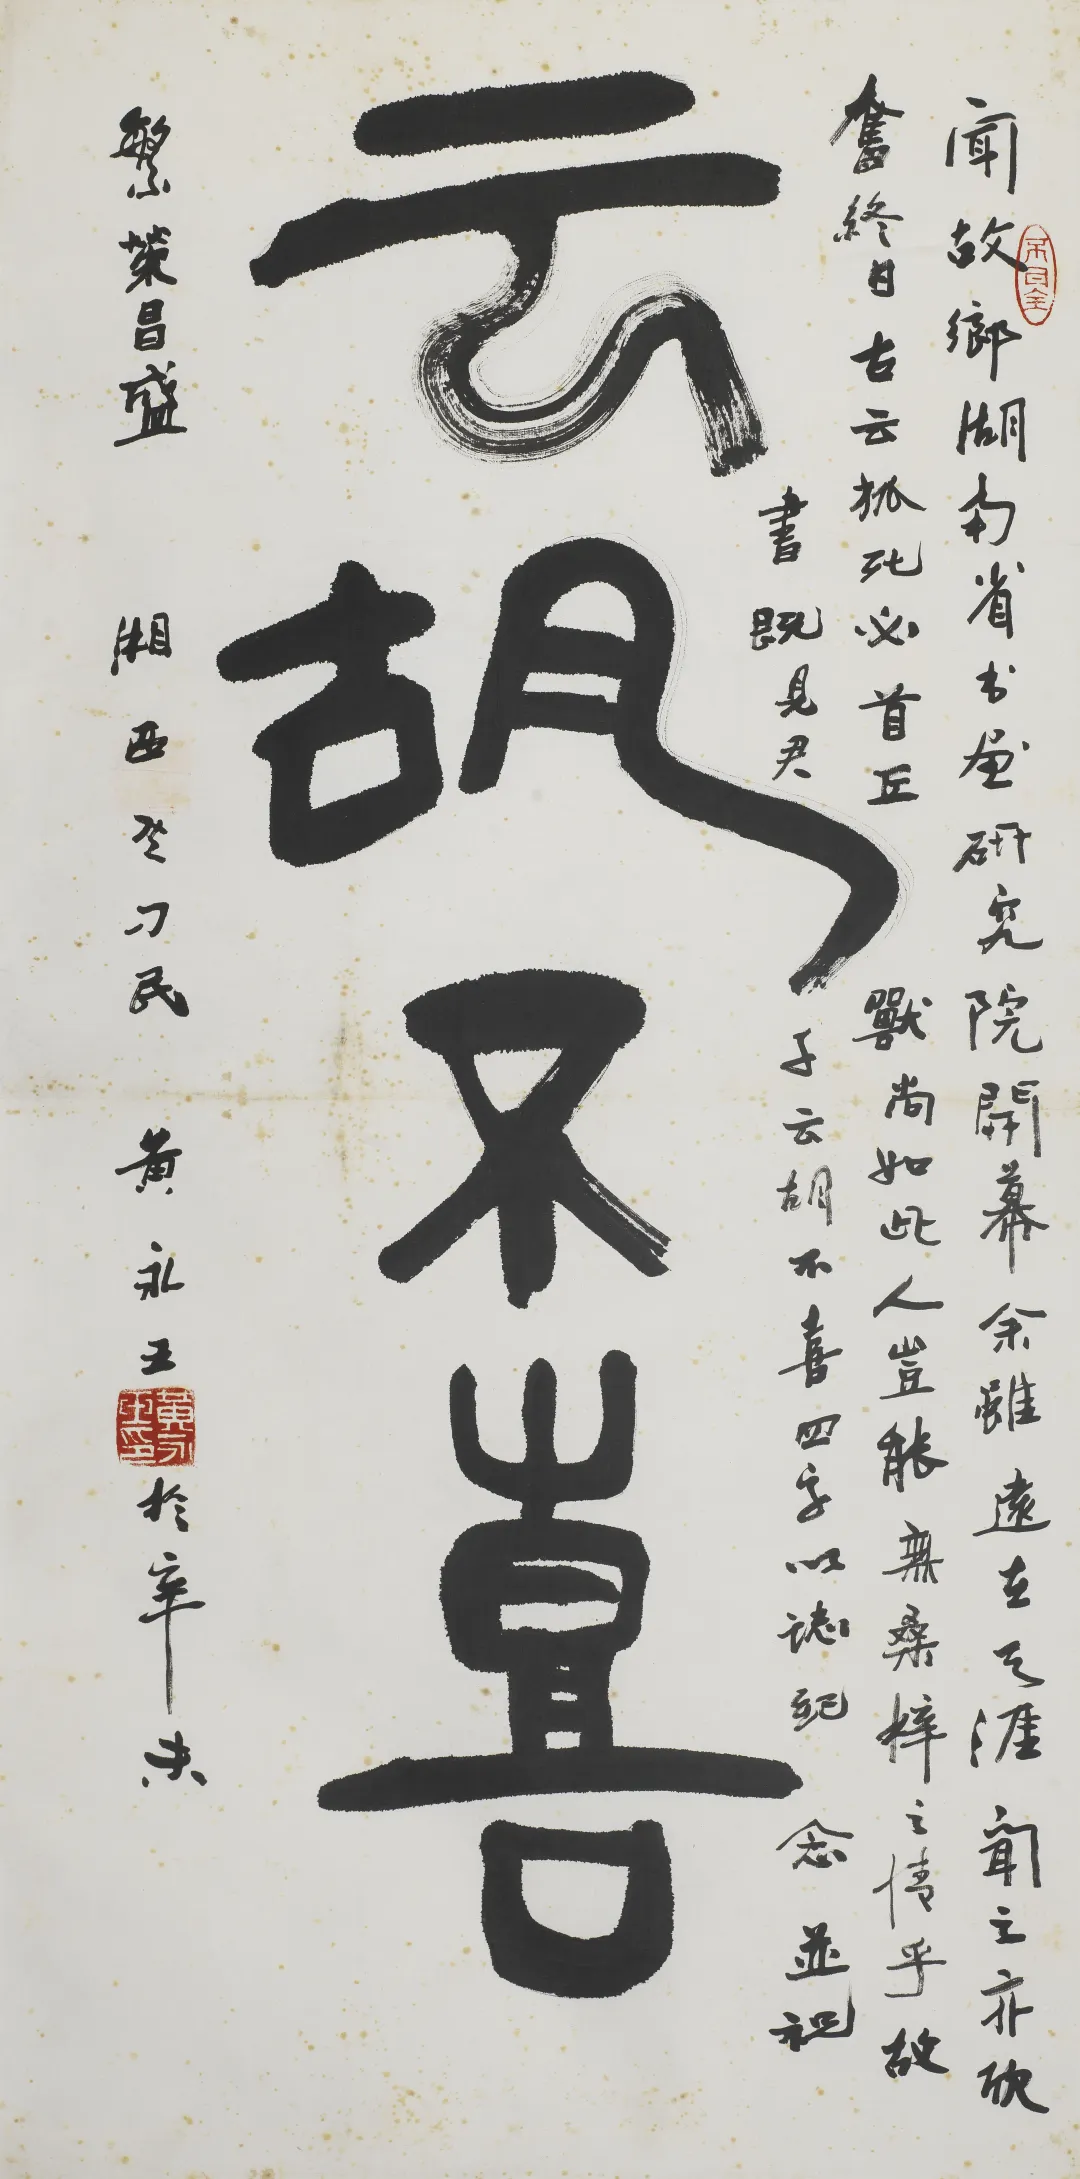 云胡不喜
聞故鄉湖南省书画研究院開幕余雖遠在天涯聞之亦欣
奮終日古云狐死必首丘獸尚如此人豈能無桑梓之情乎故
書既見君子云胡不喜四字以誌紀念並祝
繁榮昌盛 湘西老刁民 黃永玉於辛未
黃永玉印